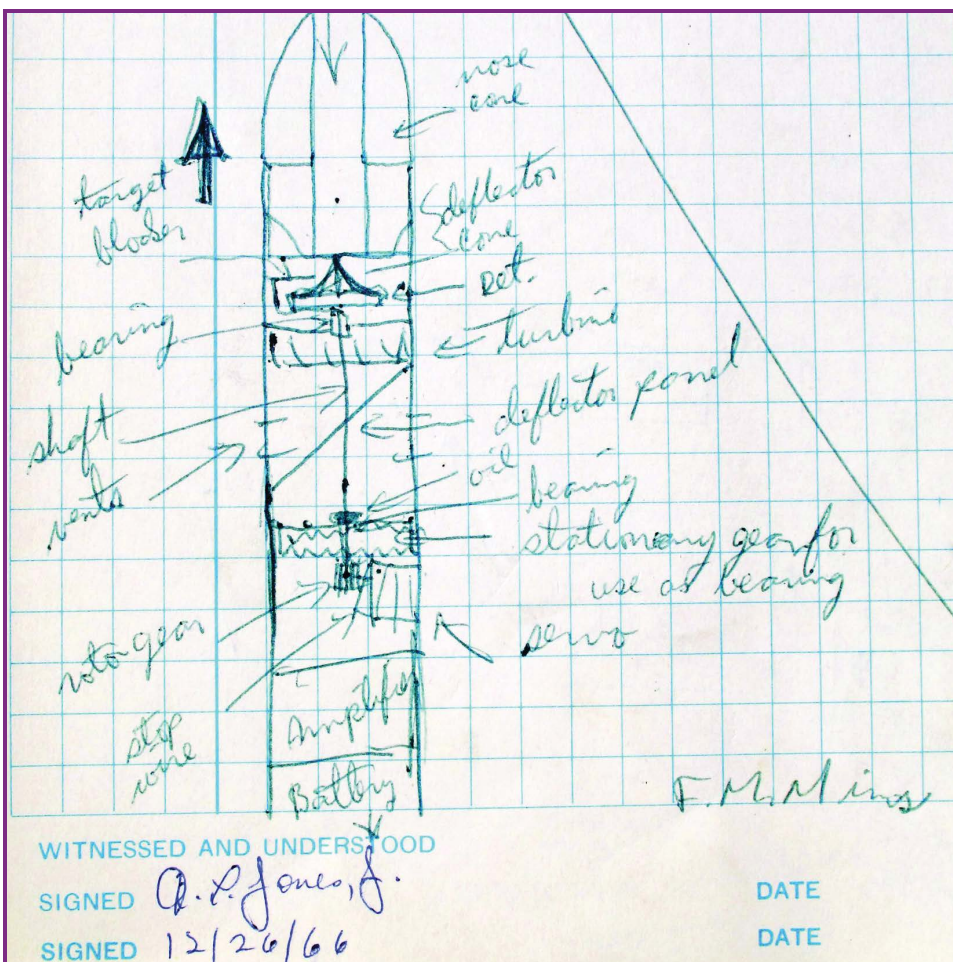 nose
cone
target
blocker
deflector
cone
Det.
bearing
turbine
shaft
deflector panel
vents
oil
bearing
stationary gear for
use as bearing
rotor gear
servo
stop
wire
Amplifier
Battery
F. M. Mims
WITNESSED AND UNDERSTOOD
SIGNED A. P. Jones, Jr.
DATE
SIGNED 12/26/66
DATE